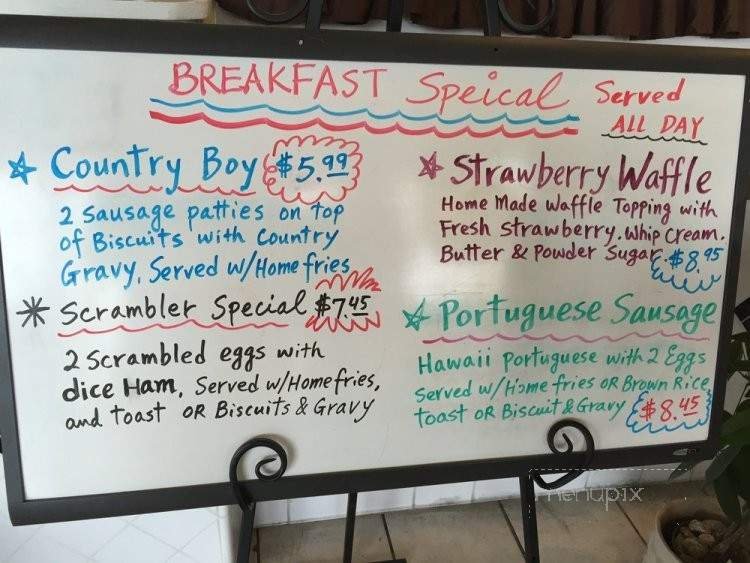 BREAKFAST Speical Served
ALL DAY
Country Boy $5.99
2 Sausage patties on top
of Biscuits with Country
Gravy, Served w/Home fries
Scrambler Special $7.45
2 Scrambled eggs with
dice Ham, Served w/Homefries,
and toast OR Biscuits & Gravy
Strawberry Waffle
Home Made Waffle Topping with
Fresh Strawberry. Whip Cream.
Butter & Powder Sugar. $8.95
Portuguese Sausage
Hawaii portuguese with 2 Eggs
Served w/Home fries OR Brown Rice
toast OR Biscuit & Gravy $8.45
menupix